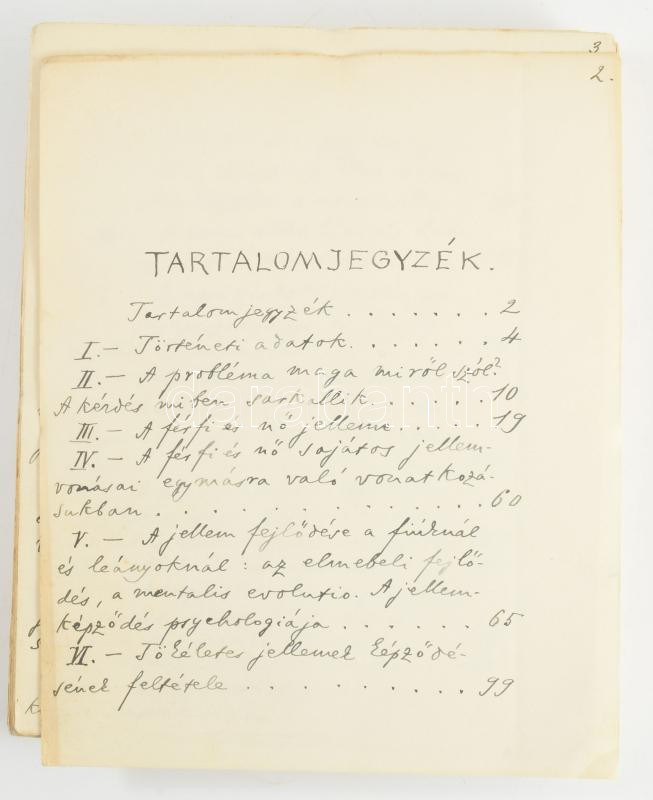 3
2.
TARTALOMJEGYZÉK.
Tartalomjegyzék . . . . . . . 2
I. – Történeti adatok. . . . . . . 4
II. – A probléma maga miről szól?
A kérdés miben sarkallik . . . . . 10
III. – A férfi és nő jelleme . . . . . 19
IV. – A férfi és nő sajátos jellem-
vonásai egymásra való vonatkozá-
sukban . . . . . . . . . . . . 60
V. – A jellem fejlődése a fiúknál
és leányoknál: az elmebeli fejlő-
dés, a mentalis evolutio. A jellem-
képződés psychologiája . . . . . . 65
VI. – Tökéletes jellemek képződé-
sének feltétele . . . . . . . . . . 99
darabanth